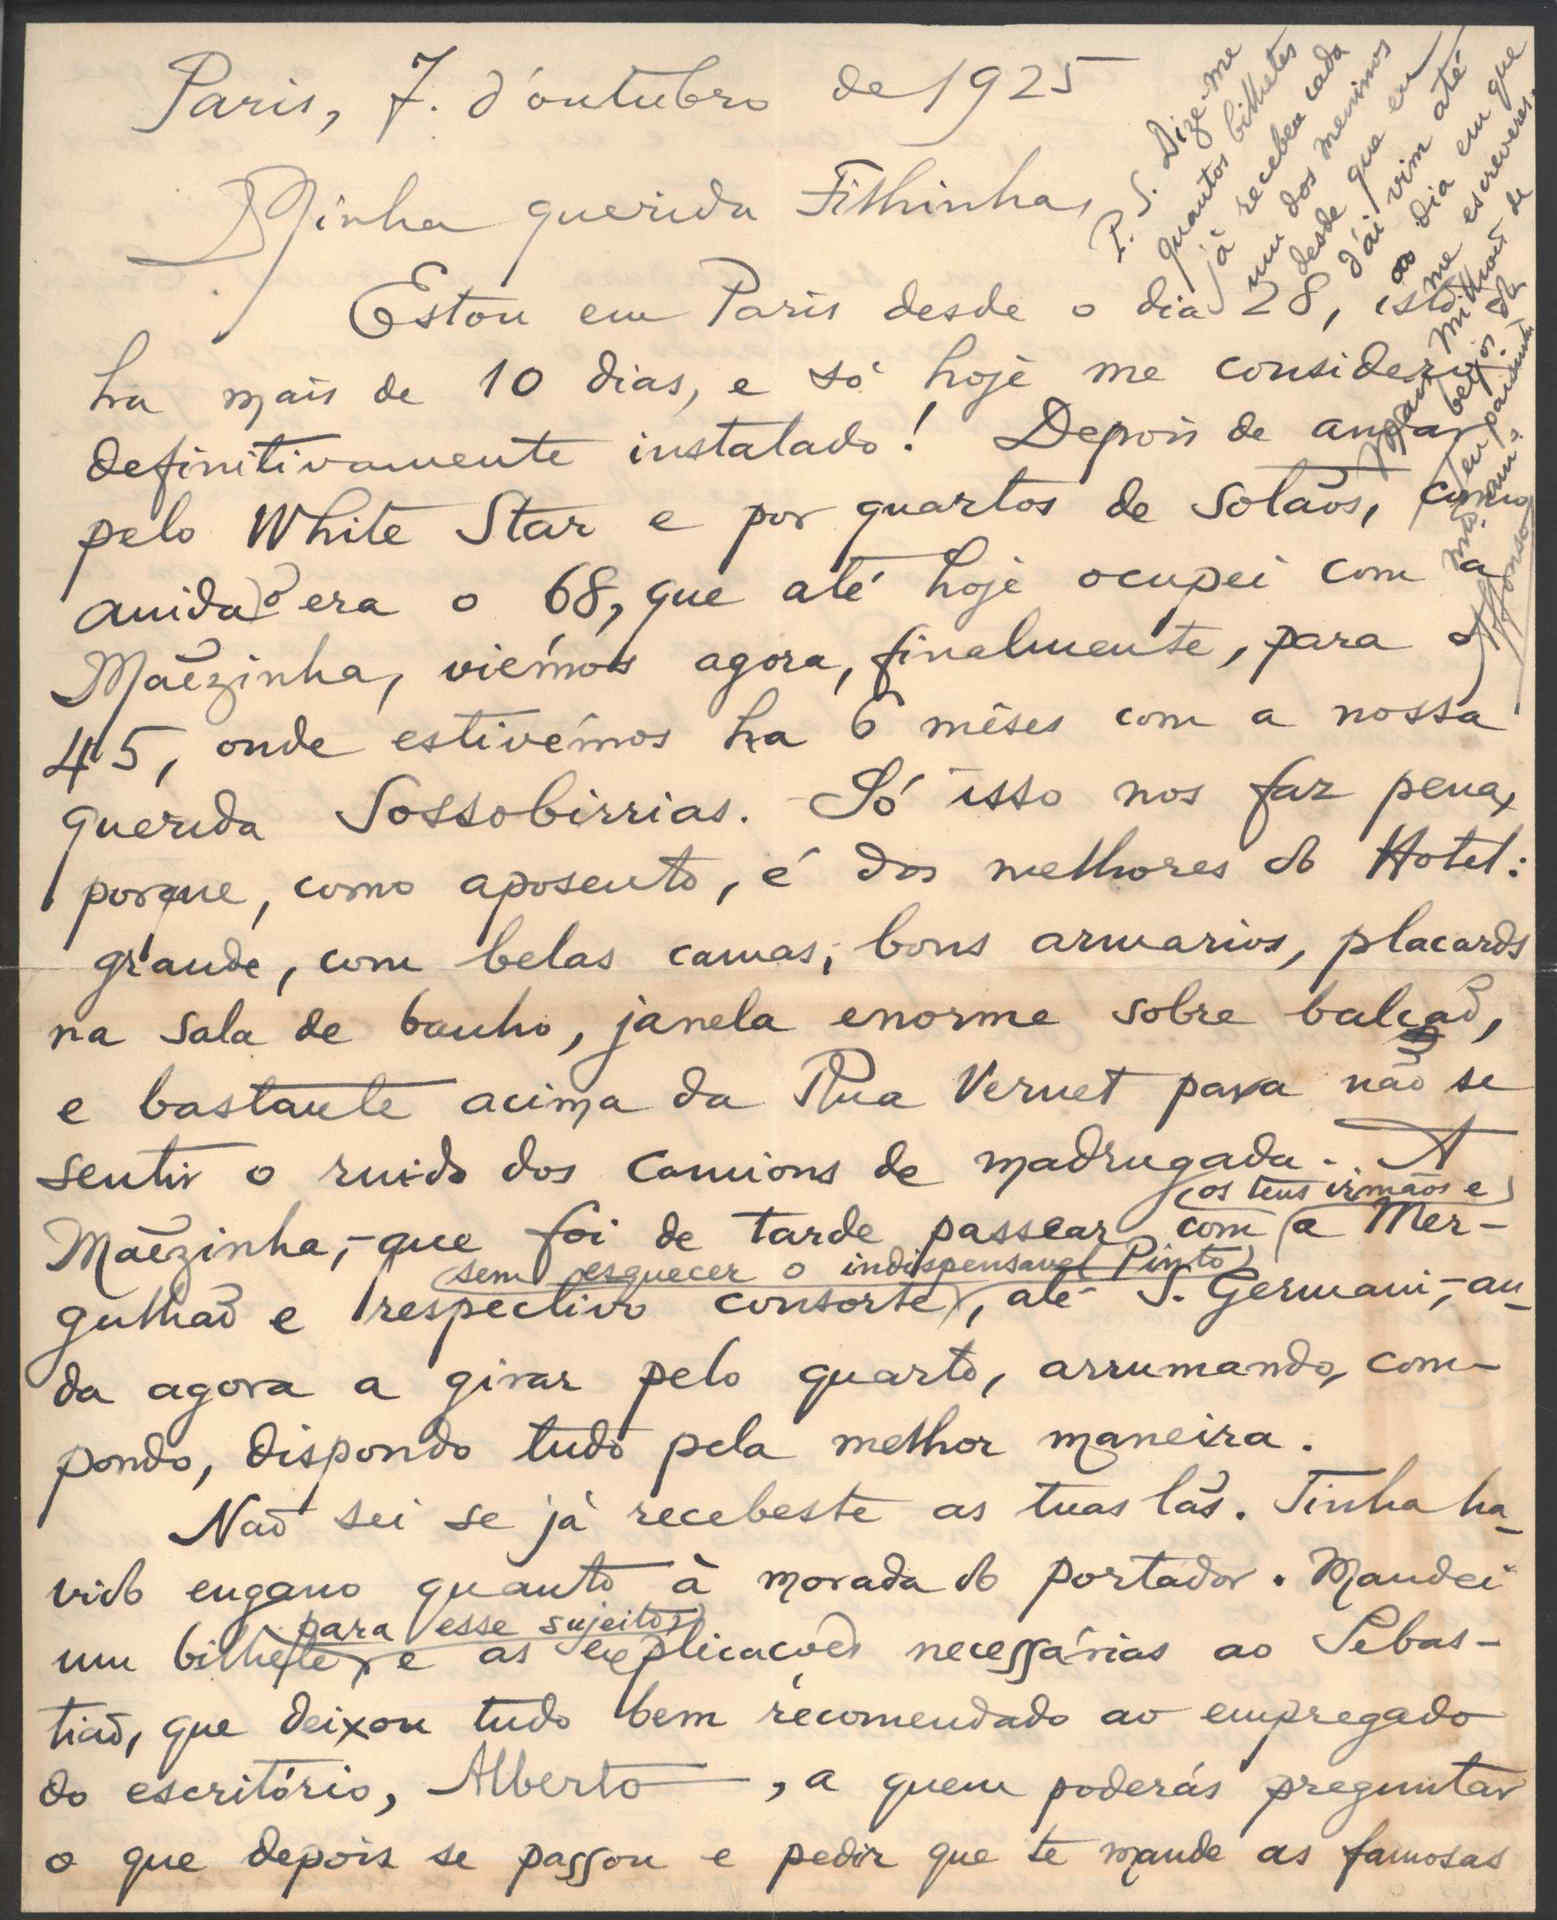 Paris, 7. d'outubro de 1925
Minha querida Filhinha,
Estou em Paris desde o dia 28, isto
ha mais de 10 dias, e só hoje me considero
definitivamente instalado! Depois de andar
pelo White Star e por quartos de sotãos, como
ainda o era o 68, que até hoje ocupei com a
Mãezinha, viémos agora, finalmente, para o
45, onde estivémos ha 6 mêses com a nossa
querida Sossobirrias. Só isso nos faz pena,
porque, como aposento, é dos melhores do Hotel:
grande, com belas camas, bons armarios, placards
na sala de banho, janela enorme sobre balcão,
e bastante acima da Rua Vernet para não se
sentir o ruido dos camions de madrugada. A
os teus irmãos e
Mãezinha, - que foi de tarde passear com a Mer-
sem esquecer o indispensavel Pinto
gulhão e respectivo consorte, até S. Germain, - an-
da agora a girar pelo quarto, arrumando, com-
pondo, dispondo tudo pela melhor maneira.
Não sei se já recebeste as tuas lãs. Tinha ha-
vido engano quanto à morada do portador. Mandei
para esse sujeito
um bilhete, e as explicações necessárias ao Sebas-
tião, que deixou tudo bem recomendado ao empregado
do escritório, Alberto, a quem poderás preguntar
o que depois se passou e pedir que te mande as famosas
P. S. Dize-me
quantos bilhetes
já recebeu cada
um dos meninos
desde que eu
d'ái vim até
ao dia em que
me escreveres.
Mais milhões de
beijos do
teu paisinho
mto. am.,
Affonso